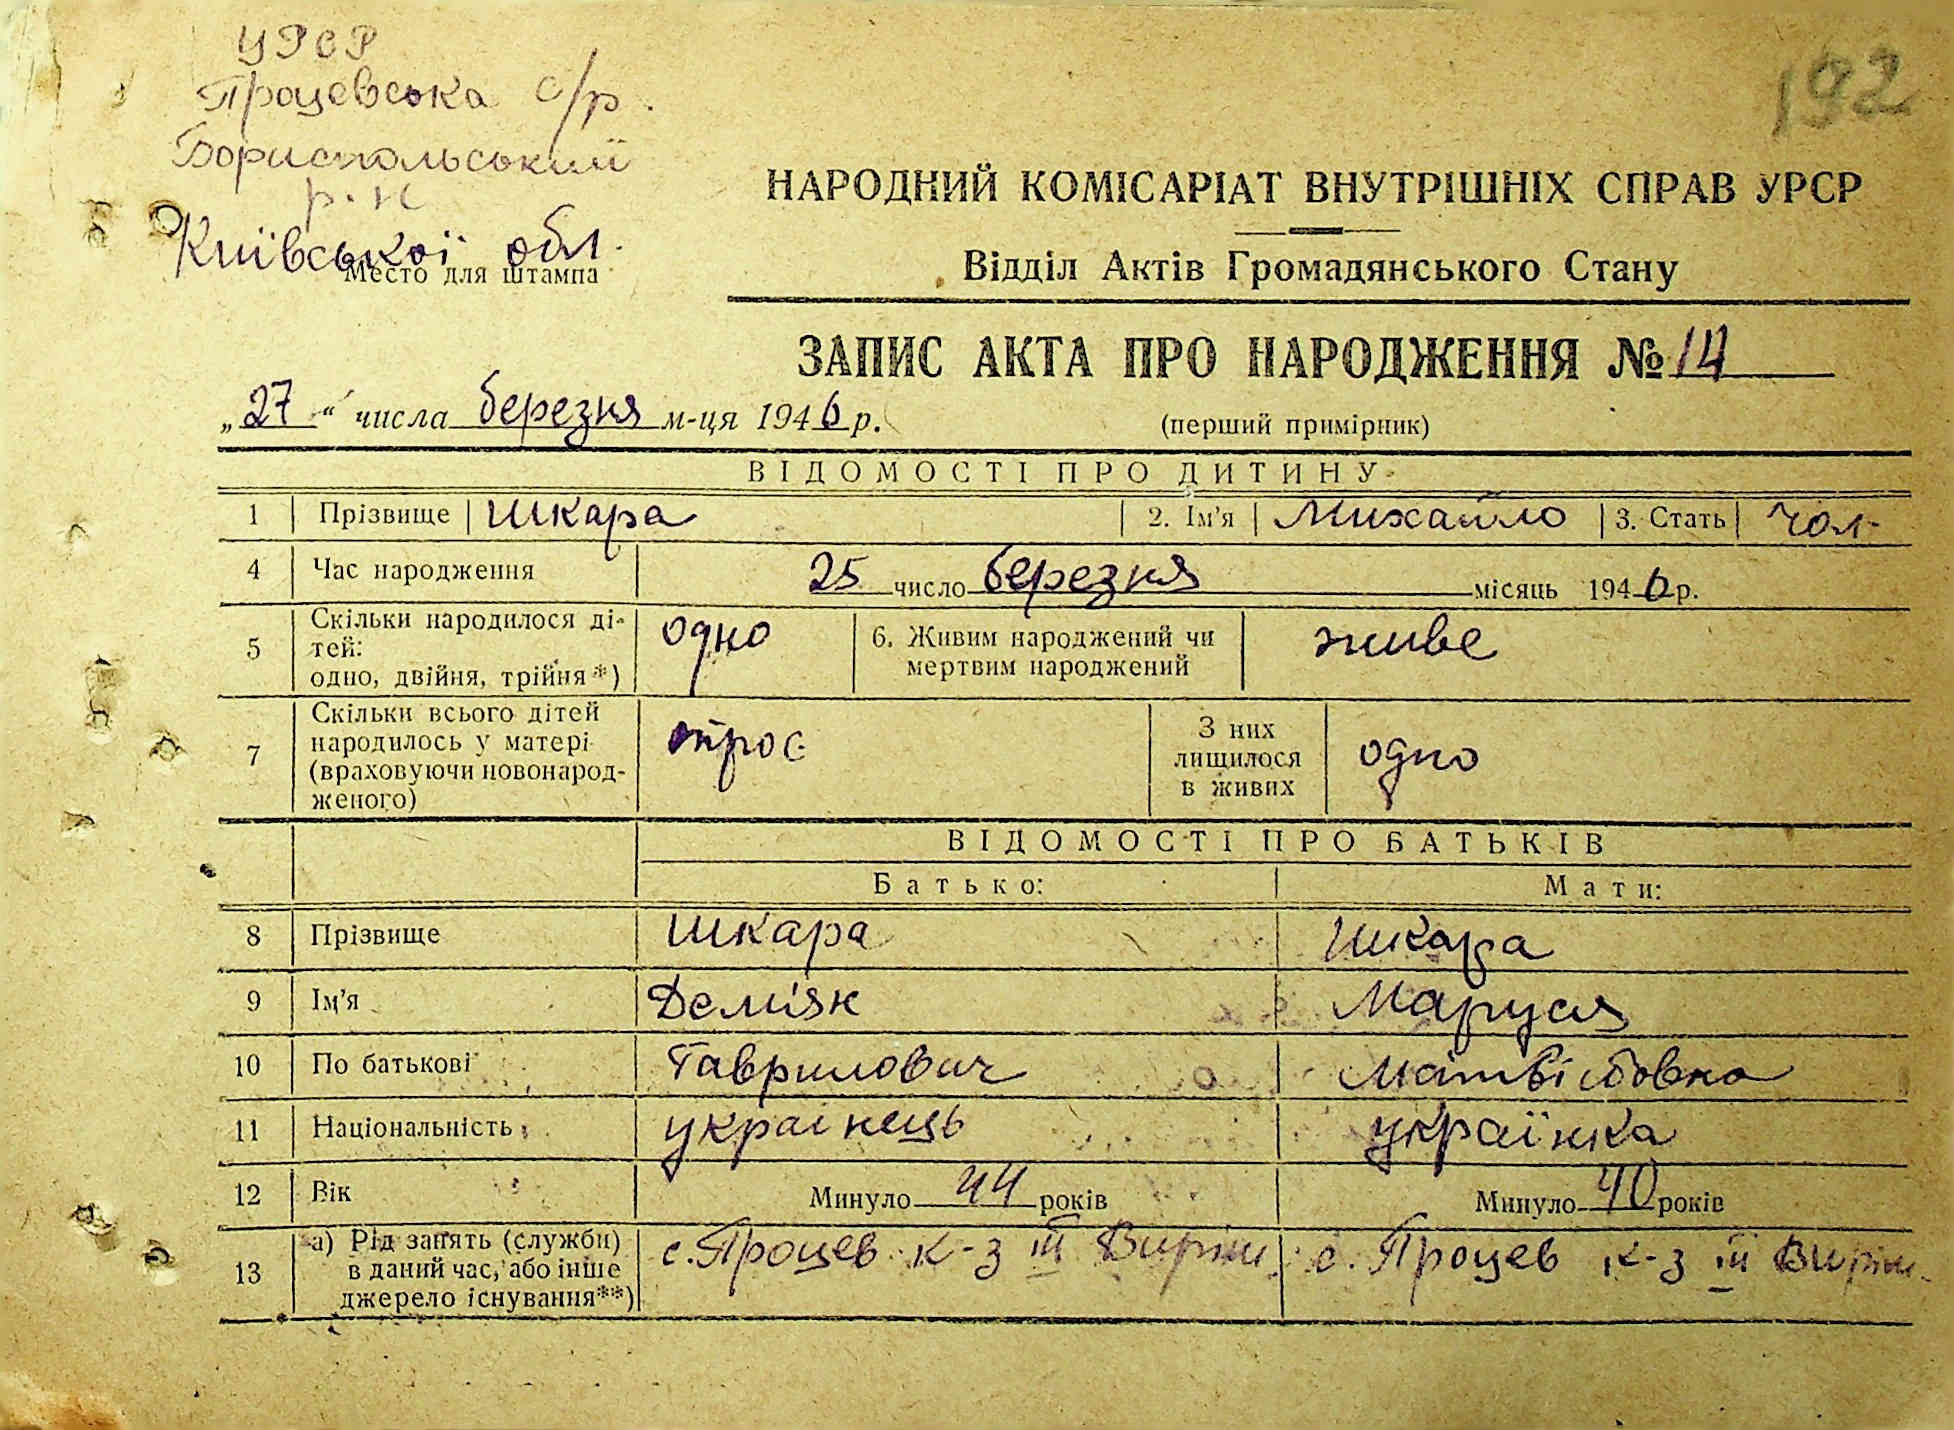 УРСР
192
Процевська с/р.
Бориспольський
р-н
Київської обл.
Место для штампа
НАРОДНИЙ КОМІСАРІАТ ВНУТРІШНІХ СПРАВ УРСР
Відділ Актів Громадянського Стану
ЗАПИС АКТА ПРО НАРОДЖЕННЯ № 14
„27“ числа березня м-ця 1946 р.
(перший примірник)
ВІДОМОСТІ ПРО ДИТИНУ
1 Прізвище Шкара 2. Ім'я Михайло 3. Стать чол.
4 Час народження 25 число березня місяць 1946 р.
5 Скільки народилося ді-
тей:
одно, двійня, трійня*)
одно
6. Живим народжений чи
мертвим народжений
живе
7 Скільки всього дітей
народилось у матері
(враховуючи новонарод-
женого)
троє
З них
лишилося
в живих
одно
ВІДОМОСТІ ПРО БАТЬКІВ
Батько: Мати:
8 Прізвище Шкара Шкара
9 Ім'я Демʼян Маруся
10 По батькові Гаврилович
11 Національність українець українка
12 Вік Минуло 44 років Минуло 40 років
13 а) Рід занять (служби)
в даний час, або інше
джерело існування**)
с. Процев к-з ІІІ Виріш. с. Процев к-з ІІІ Виріш.